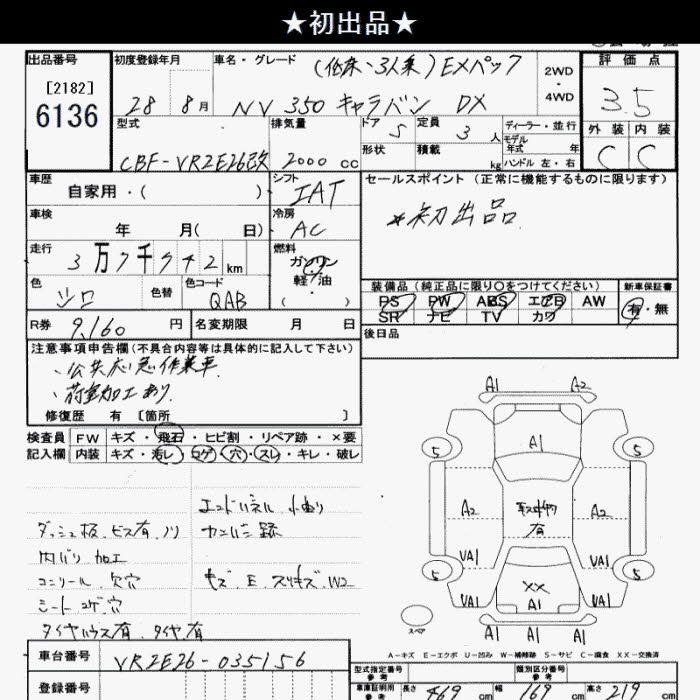 ★初出品★
出品番号
[2182]
6136
初度登録年月
28 8月
車名・グレード
(低床・3人乗)EXパック
NV 350 キャラバン DX
2WD
・
4WD
評価点
3.5
外装 内装
C C
型式
CBF-VR2E26改
排気量
2000 cc
ドア 5
定員 3 人
形状
積載 kg
ディーラー・並行
モデル
年式 年
ハンドル 左・右
車歴
自家用・( )
シフト
IAT
セールスポイント (正常に機能するものに限ります)
*初出品
車検
年 月( 日)
冷房
AC
走行
3万7千942km
燃料
ガソリン
軽/油
・
( )
色
シロ
色替
色コード
QAB
装備品 (純正品に限り○をつけてください)
PS PW ABS エアB AW
SR ナビ TV カワ
新車保証書
有・無
R券 9,160 円
名変期限 月 日
後日品
注意事項申告欄(不具合内容等は具体的に記入して下さい)
・公共応急作業車
・荷室加工あり
修復歴 有 [箇所 ]
検査員 FW キズ・飛石・ヒビ割・リペア跡・×要
記入欄 内装 キズ・汚レ・コゲ・穴・スレ・キレ・破レ
エンドパネル 小曲り
ダッシュ板、ビス有、ノリ
内バリ 加工
コンソール 欠穴
シートコゲ、穴
タイヤハウス有、タイヤ有
キズ E スリキズ W2
A1 A2
A1
5 5
A2 A2
有
UA1 UA1
5 5
XX
UA1 A1 UA1
A1 A1 A1
スペア
A-キズ E-エクボ U-凹み W-補修跡 S-サビ C-腐食 XX-交換済
車台番号 VR2E26-035156
登録番号
型式指定番号
参考
類別区分番号
参考
車庫証明用
参考
長さ 469 cm
幅 169 cm
高さ 219 cm